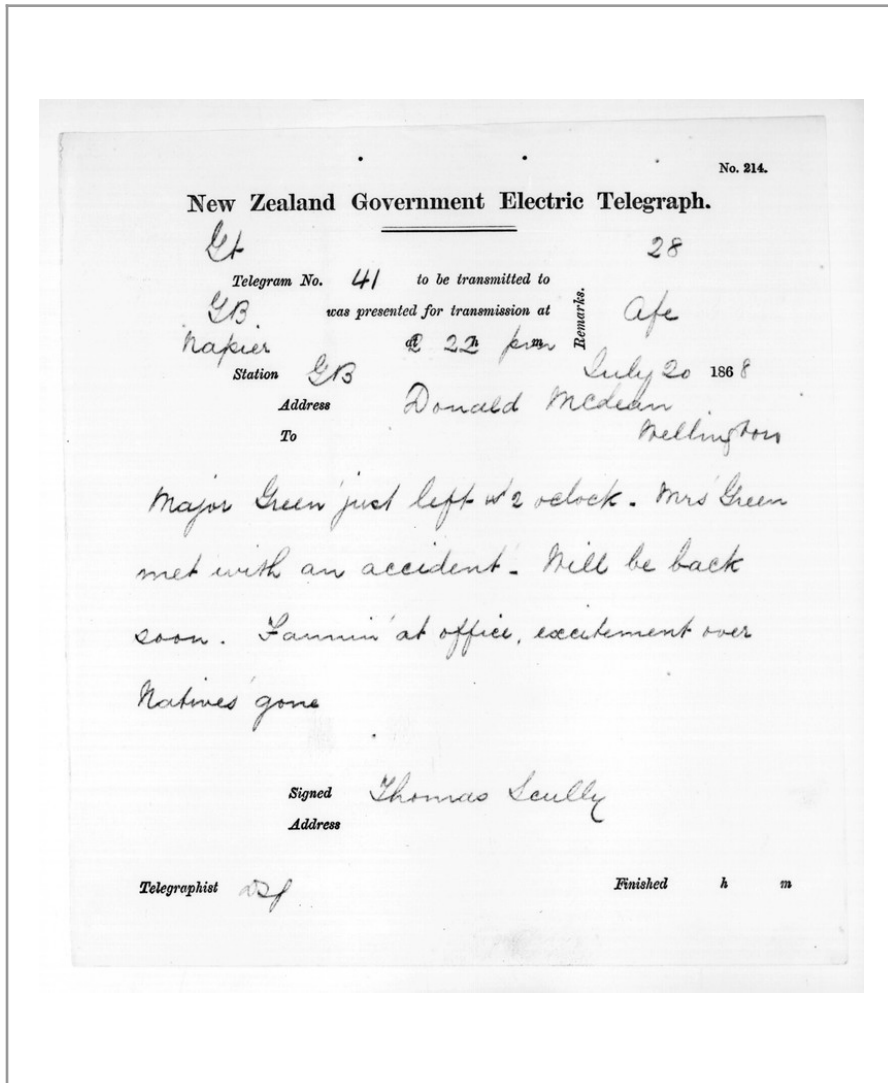 No. 214.
New Zealand Government Electric Telegraph.
Gt 28
Telegram No. 41 to be transmitted to
GB was presented for transmission at Remarks.
Napier 2 h 22 pm m
Station GB July 20 1868
Address Donald McLean
To Wellington
Major Green just left 2 oclock. Mrs Green
met with an accident. Will be back
soon. Fannin at office, excitement over
Natives gone
Signed Thomas Scully
Address
Telegraphist
Finished h m